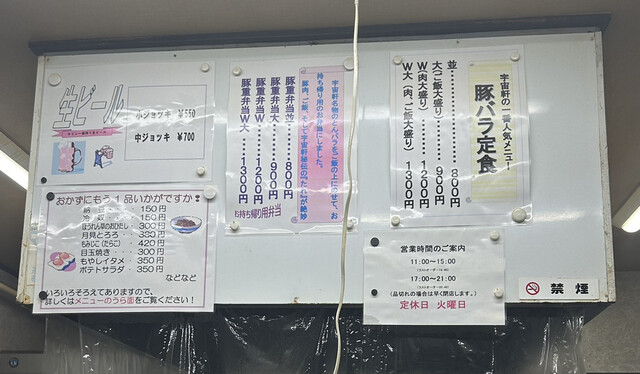 生ビール
小ジョッキ ¥550
中ジョッキ ¥700
おかずにもう1品いかがですか❢
納豆・・・ 150円
冷奴・・・ 150円
ほうれん草のおひたし 300円
月見とろろ・・ 330円
もみじこ(たらこ)・ 420円
目玉焼き・・・ 300円
もやしイタメ・ 350円
ポテトサラダ・ 350円
などなど
いろいろそろえてありますので、
詳しくはメニューのうら面をご覧ください!
宇宙軒名物のとんバラをご飯の上にのせて、お
持ち帰り用のお弁当にしました。
豚肉、ご飯、そして宇宙軒秘伝の「たれ」が絶妙
豚重弁当並・・・800円
豚重弁当大・・・900円
豚重弁当W・・・1200円
豚重弁当W大・・・1300円
お持ち帰り用弁当
宇宙軒の一番人気メニュー
豚バラ定食
並・・・・・・・・・・800円
大(ご飯大盛り)・・・900円
W(肉大盛り)・・・1200円
W大(肉、ご飯大盛り) 1300円
営業時間のご案内
11:00~15:00
17:00~21:00
(品切れの場合は早く閉店します。)
定休日 火曜日
禁煙